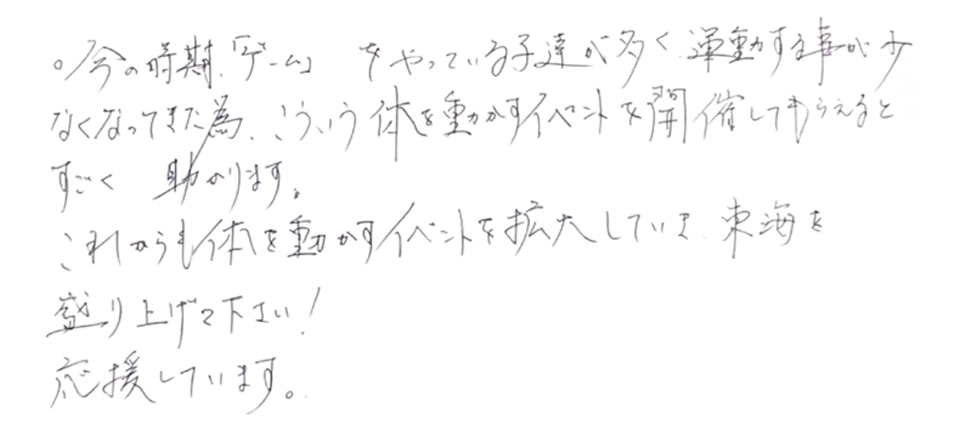 ○今の時期、「ゲーム」をやっている子達が多く、運動する事が少
なくなってきた為、こういう体を動かすイベントを開催してもらえると
すごく助かります。
これからも体を動かすイベントを拡大していき、東海を
盛り上げて下さい!
応援しています。